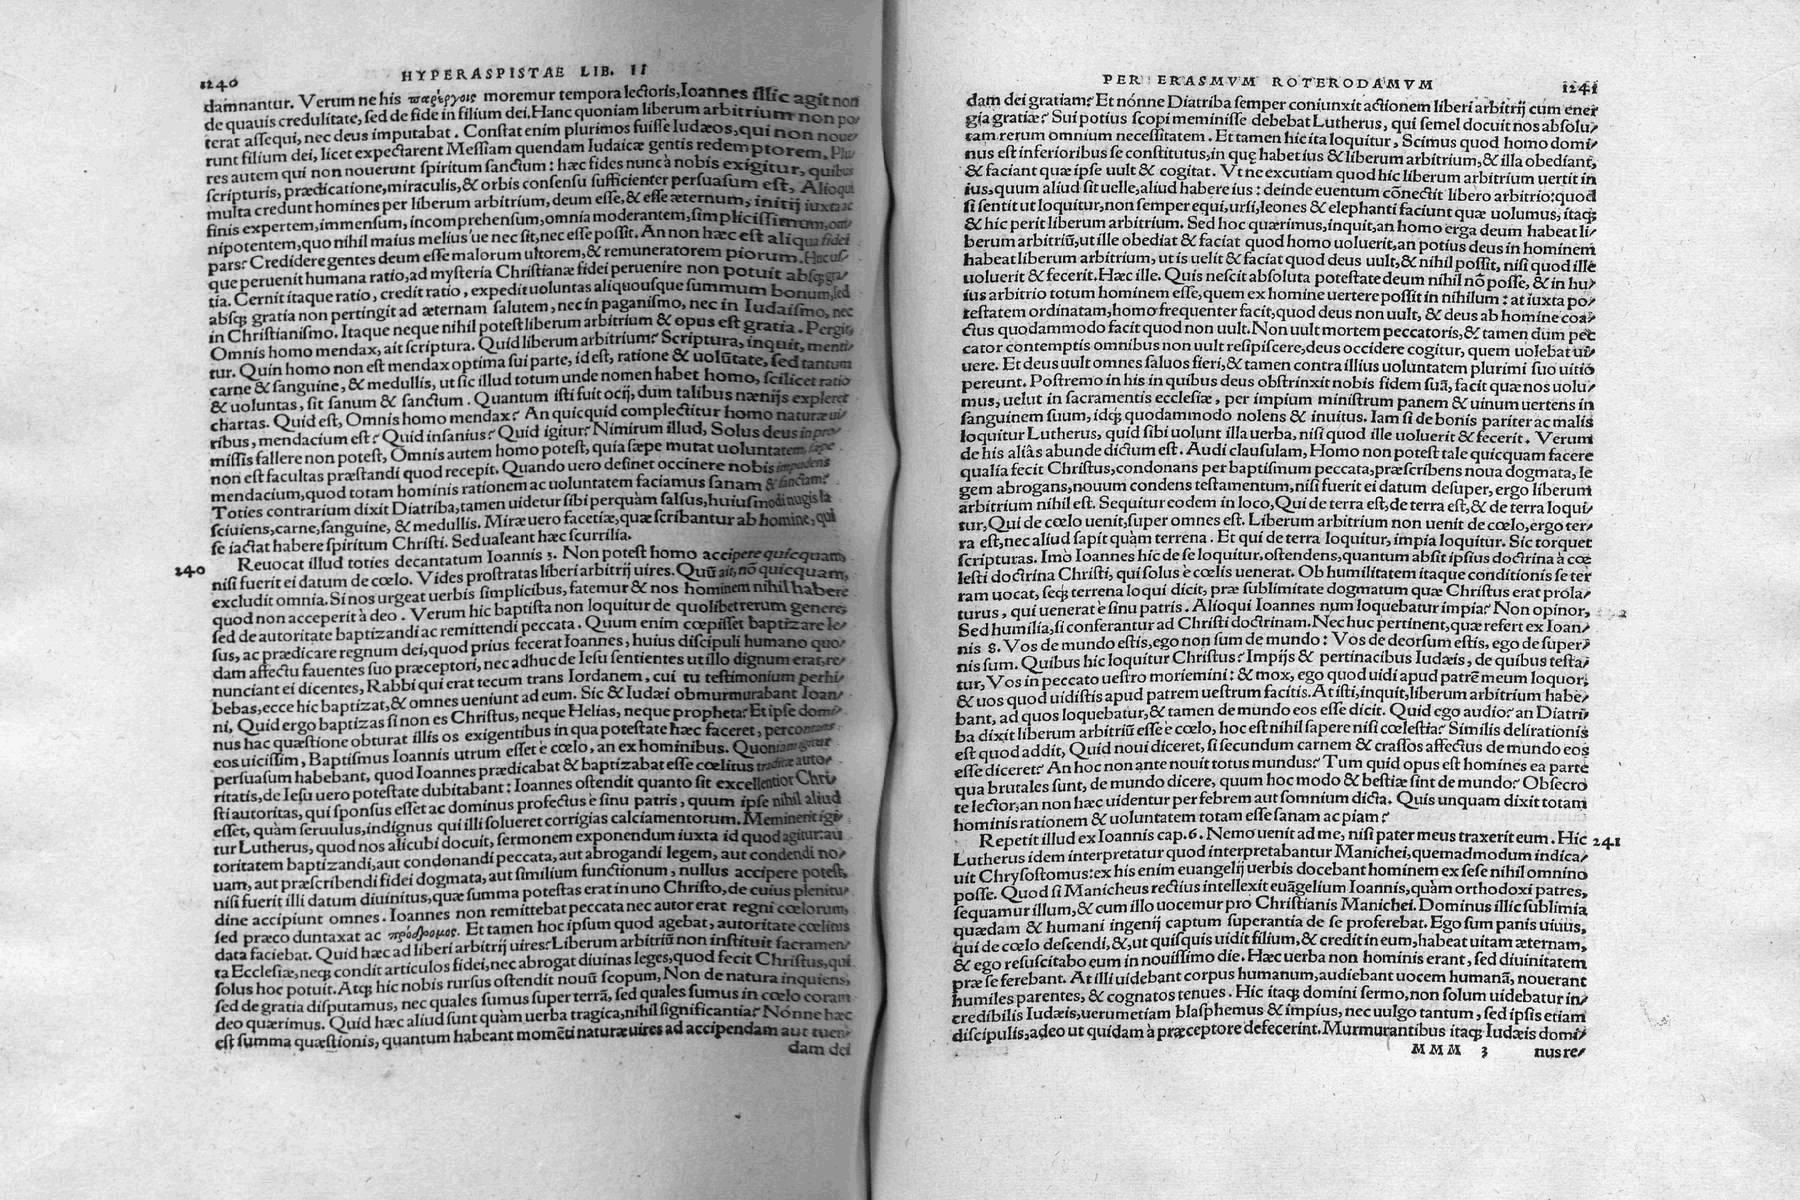 1240
HYPERASPISTAE LIB. II
damnantur. Verum ne his παρέργοις moremur tempora lectoris, Ioannes illic agit non
de quauis credulitate, sed de fide in filium dei. Hanc quoniam liberum arbitrium non po/
terat assequi, nec deus imputabat. Constat enim plurimos fuisse Iudæos, qui non noue/
runt filium dei, licet expectarent Messiam quendam Iudaicæ gentis redemptorem, Plu/
res autem qui non nouerunt spiritum sanctum: hæc fides nunc à nobis exigitur, quibus
scripturis, prædicatione, miraculis, & orbis consensu sufficienter persuasum est, Alioqui
multa credunt homines per liberum arbitrium, deum esse, & esse æternum, initij iuxta ac
finis expertem, immensum, incomprehensum, omnia moderantem, simplicissimum, om/
nipotentem, quo nihil maius melius'ue nec sit, nec esse possit. An non hæc est aliqua fidei
pars? Credidere gentes deum esse malorum ultorem, & remuneratorem piorum. Hucus/
que peruenit humana ratio, ad mysteria Christianæ fidei peruenire non potuit absq; gra/
tia. Cernit itaque ratio, credit ratio, expedit uoluntas aliquousque summum bonum, sed
absq; gratia non pertingit ad æternam salutem, nec in paganismo, nec in Iudaismo, nec
in Christianismo. Itaque neque nihil potest liberum arbitrium & opus est gratia. Pergit,
Omnis homo mendax, ait scriptura. Quid liberum arbitrium? Scriptura, inquit, menti/
tur. Quin homo non est mendax optima sui parte, id est, ratione & uolūtate, sed tantum
carne & sanguine, & medullis, ut sic illud totum unde nomen habet homo, scilicet ratio
& uoluntas, sit sanum & sanctum. Quantum isti fuit ocij, dum talibus nænijs expleret
chartas. Quid est, Omnis homo mendax? An quicquid complectitur homo naturæ ui/
ribus, mendacium est? Quid insanius? Quid igitur? Nimirum illud, Solus deus in pro/
missis fallere non potest, Omnis autem homo potest, quia sæpe mutat uoluntatem, sæpe
non est facultas præstandi quod recepit. Quando uero desinet occinere nobis impudens
mendacium, quod totam hominis rationem ac uoluntatem faciamus sanam & sanctam?
Toties contrarium dixit Diatriba, tamen uidetur sibi perquàm salsus, huiusmodi nugis la
sciuiens, carne, sanguine, & medullis. Miræ uero facetiæ, quæ scribantur ab homine, qui
se iactat habere spiritum Christi. Sed ualeant hæc scurrilia.
240
Reuocat illud toties decantatum Ioannis 3. Non potest homo accipere quicquam,
nisi fuerit ei datum de cœlo. Vides prostratas liberi arbitrij uires. Quū ait, nō quicquam,
excludit omnia. Si nos urgeat uerbis simplicibus, fatemur & nos hominem nihil habere
quod non acceperit à deo. Verum hic baptista non loquitur de quolibet rerum genere,
sed de autoritate baptizandi ac remittendi peccata. Quum enim cœpisset baptizare Ie/
sus, ac prædicare regnum dei, quod prius fecerat Ioannes, huius discipuli humano quo/
dam affectu fauentes suo præceptori, nec adhuc de Iesu sentientes ut illo dignum erat, re/
nunciant ei dicentes, Rabbi qui erat tecum trans Iordanem, cui tu testimonium perhi/
bebas, ecce hic baptizat, & omnes ueniunt ad eum. Sic & Iudæi obmurmurabant Ioan/
ni, Quid ergo baptizas si non es Christus, neque Helias, neque propheta? Et ipse domi/
nus hac quæstione obturat illis os exigentibus in qua potestate hæc faceret, percontans
eos uicissim, Baptismus Ioannis utrum esset è cœlo, an ex hominibus. Quoniam igitur
persuasum habebant, quod Ioannes prædicabat & baptizabat esse cœlitus traditæ auto/
ritatis, de Iesu uero potestate dubitabant: Ioannes ostendit quanto sit excellentior Chri/
sti autoritas, qui sponsus esset ac dominus profectus è sinu patris, quum ipse nihil aliud
esset, quàm seruulus, indignus qui illi solueret corrigias calciamentorum. Meminerit igi/
tur Lutherus, quod nos alicubi docuit, sermonem exponendum iuxta id quod agitur: au
toritatem baptizandi, aut condonandi peccata, aut abrogandi legem, aut condendi no/
uam, aut præscribendi fidei dogmata, aut similium functionum, nullus accipere potest,
nisi fuerit illi datum diuinitus, quæ summa potestas erat in uno Christo, de cuius plenitu/
dine accipiunt omnes. Ioannes non remittebat peccata nec autor erat regni cœlorum,
sed præco duntaxat ac πρόδρομος. Et tamen hoc ipsum quod agebat, autoritate cœlitus
data faciebat. Quid hæc ad liberi arbitrij uires? Liberum arbitriū non instituit sacramen/
ta Ecclesiæ, neq; condit articulos fidei, nec abrogat diuinas leges, quod fecit Christus, qui
solus hoc potuit. Atq; hic nobis rursus ostendit nouū scopum, Non de natura inquiens,
sed de gratia disputamus, nec quales sumus super terrā, sed quales sumus in cœlo coram
deo quærimus. Quid hæc aliud sunt quàm uerba tragica, nihil significantia? Nónne hæc
est summa quæstionis, quantum habeant momēti naturæ uires ad accipendam aut tuen/
dam dei
PER ERASMVM ROTERODAMVM
1241
dam dei gratiam? Et nónne Diatriba semper coniunxit actionem liberi arbitrij cum ener
gia gratiæ? Sui potius scopi meminisse debebat Lutherus, qui semel docuit nos absolu/
tam rerum omnium necessitatem. Et tamen hic ita loquitur, Scimus quod homo domi/
nus est inferioribus se constitutus, in quę habet ius & liberum arbitrium, & illa obediant,
& faciant quæ ipse uult & cogitat. Vt ne excutiam quod hic liberum arbitrium uertit in
ius, quum aliud sit uelle, aliud habere ius: deinde euentum cōnectit libero arbitrio: quod
si sentit ut loquitur, non semper equi, ursi, leones & elephanti faciunt quæ uolumus, itaq;
& hic perit liberum arbitrium. Sed hoc quærimus, inquit, an homo erga deum habeat li/
berum arbitriū, ut ille obediat & faciat quod homo uoluerit, an potius deus in hominem
habeat liberum arbitrium, ut is uelit & faciat quod deus uult, & nihil possit, nisi quod ille
uoluerit & fecerit. Hæc ille. Quis nescit absoluta potestate deum nihil nō posse, & in hu/
ius arbitrio totum hominem esse, quem ex homine uertere possit in nihilum: at iuxta po/
testatem ordinatam, homo frequenter facit, quod deus non uult, & deus ab homine coa/
ctus quodammodo facit quod non uult. Non uult mortem peccatoris, & tamen dum pec
cator contemptis omnibus non uult resipiscere, deus occidere cogitur, quem uolebat ui/
uere. Et deus uult omnes saluos fieri, & tamen contra illius uoluntatem plurimi suo uitio
pereunt. Postremo in his in quibus deus obstrinxit nobis fidem suā, facit quæ nos uolu/
mus, uelut in sacramentis ecclesiæ, per impium ministrum panem & uinum uertens in
sanguinem suum, idq; quodammodo nolens & inuitus. Iam si de bonis pariter ac malis
loquitur Lutherus, quid sibi uolunt illa uerba, nisi quod ille uoluerit & fecerit. Verum
de his aliâs abunde dictum est. Audi clausulam, Homo non potest tale quicquam facere
qualia fecit Christus, condonans per baptismum peccata, præscribens noua dogmata, le
gem abrogans, nouum condens testamentum, nisi fuerit ei datum desuper, ergo liberum
arbitrium nihil est. Sequitur eodem in loco, Qui de terra est, de terra est, & de terra loqui/
tur, Qui de cœlo uenit, super omnes est. Liberum arbitrium non uenit de cœlo, ergo ter/
ra est, nec aliud sapit quàm terrena. Et qui de terra loquitur, impia loquitur. Sic torquet
scripturas. Imò Ioannes hic de se loquitur, ostendens, quantum absit ipsius doctrina à cœ
lesti doctrina Christi, qui solus è cœlis uenerat. Ob humilitatem itaque conditionis se ter
ram uocat, seq; terrena loqui dicit, præ sublimitate dogmatum quæ Christus erat prola/
turus, qui uenerat è sinu patris. Alioqui Ioannes num loquebatur impia? Non opinor,
Sed humilia, si conferantur ad Christi doctrinam. Nec huc pertinent, quæ refert ex Ioan/
nis 8. Vos de mundo estis, ego non sum de mundo: Vos de deorsum estis, ego de super/
nis sum. Quibus hic loquitur Christus? Impijs & pertinacibus Iudæis, de quibus testa/
tur, Vos in peccato uestro moriemini: & mox, ego quod uidi apud patrē meum loquor,
& uos quod uidistis apud patrem uestrum facitis. At isti, inquit, liberum arbitrium habe/
bant, ad quos loquebatur, & tamen de mundo eos esse dicit. Quid ego audio? an Diatri/
ba dixit liberum arbitriū esse è cœlo, hoc est nihil sapere nisi cœlestia? Similis delirationis
est quod addit, Quid noui diceret, si secundum carnem & crassos affectus de mundo eos
esse diceret? An hoc non ante nouit totus mundus? Tum quid opus est homines ea parte
qua brutales sunt, de mundo dicere, quum hoc modo & bestiæ sint de mundo? Obsecro
te lector, an non hæc uidentur per febrem aut somnium dicta. Quis unquam dixit totam
hominis rationem & uoluntatem totam esse sanam ac piam?
Repetit illud ex Ioannis cap. 6. Nemo uenit ad me, nisi pater meus traxerit eum. Hic
241
Lutherus idem interpretatur quod interpretabantur Manichei, quemadmodum indica/
uit Chrysostomus: ex his enim euangelij uerbis docebant hominem ex sese nihil omnino
posse. Quod si Manicheus rectius intellexit euāgelium Ioannis, quàm orthodoxi patres,
sequamur illum, & cum illo uocemur pro Christianis Manichei. Dominus illic sublimia
quædam & humani ingenij captum superantia de se proferebat. Ego sum panis uiuus,
qui de cœlo descendi, &, ut quisquis uidit filium, & credit in eum, habeat uitam æternam,
& ego resuscitabo eum in nouissimo die. Hæc uerba non hominis erant, sed diuinitatem
præ se ferebant. At illi uidebant corpus humanum, audiebant uocem humanā, nouerant
humiles parentes, & cognatos tenues. Hic itaq; domini sermo, non solum uidebatur in/
credibilis Iudæis, uerumetiam blasphemus & impius, nec uulgo tantum, sed ipsis etiam
discipulis, adeo ut quidam à præceptore defecerint. Murmurantibus itaq; Iudæis domi/
MMM 3
nus re/